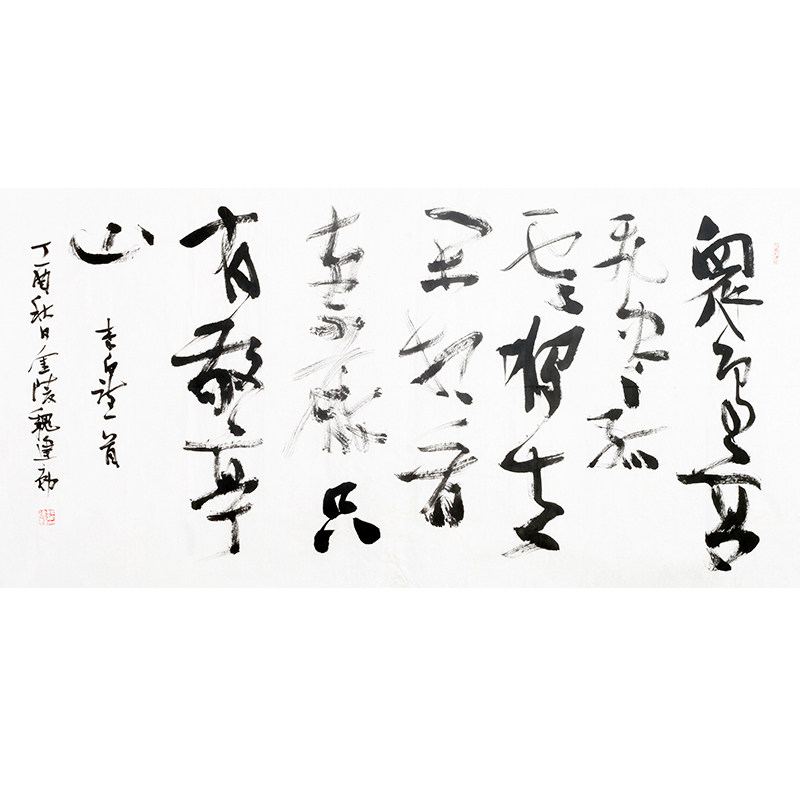 眾鳥高
飛盡孤
雲獨去
閒相看
兩不厭只
有敬亭
山
李白詩一首
丁酉秋日金陵魏